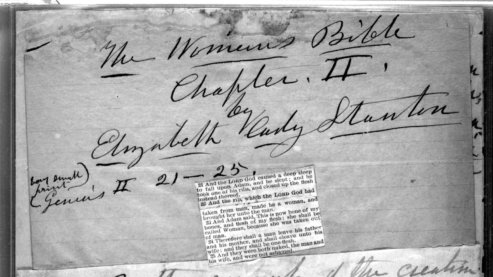 The Woman's Bible
Chapter. II.
by
Elizabeth Cady Stanton
(very small
print)
Genesis II 21—25.
21 And the LORD God caused a deep sleep
to fall upon Adam, and he slept; and he
took one of his ribs, and closed up the flesh
instead thereof.
22 And the rib, which the LORD God had
taken from man, made he a woman, and
brought her unto the man.
23 And Adam said, This is now bone of my
bones, and flesh of my flesh: she shall be
called Woman, because she was taken out
of man.
24 Therefore shall a man leave his father
and his mother, and shall cleave unto his
wife: and they shall be one flesh.
25 And they were both naked, the man and
his wife, and were not ashamed.
of the creation